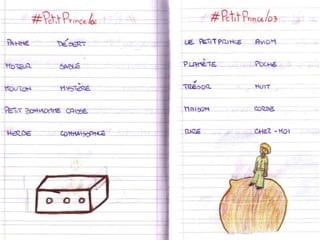 #PetitPrince/02
PANNE DÉSERT
MOTEUR SABLE
MOUTON MYSTÈRE
PETIT BONHOMME CAISSE
HERBE CONNAISSANCE
#PetitPrince/03
LE PETIT PRINCE AVION
PLANÈTE POCHE
TRÉSOR NUIT
MAISON CORDE
RIRE CHEZ-MOI